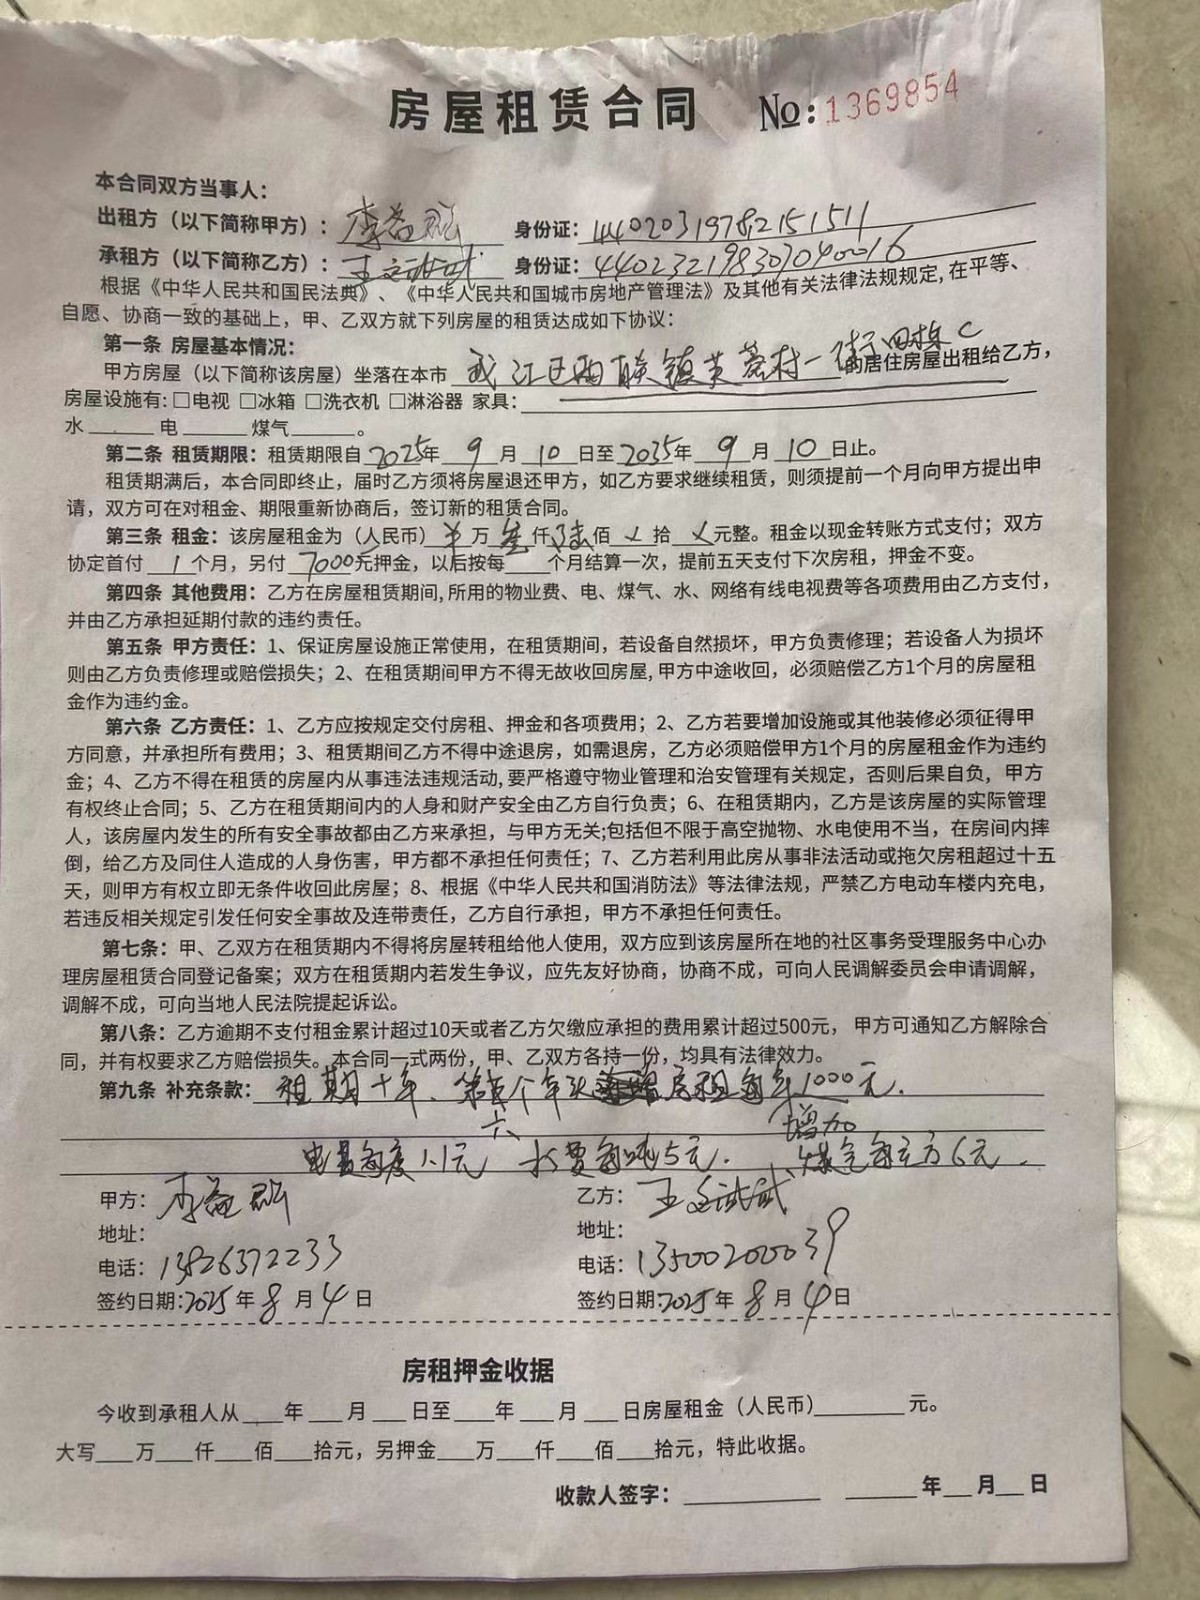 房屋租赁合同 No:1369854
本合同双方当事人：
出租方（以下简称甲方）：李益群 身份证：44020319782151511
承租方（以下简称乙方）：王文斌 身份证：440232198307040016
根据《中华人民共和国民法典》、《中华人民共和国城市房地产管理法》及其他有关法律法规规定,在平等、
自愿、协商一致的基础上，甲、乙双方就下列房屋的租赁达成如下协议：
第一条 房屋基本情况：
甲方房屋（以下简称该房屋）坐落在本市 武江区西联镇芙蓉村一街四栋C 的居住房屋出租给乙方，
房屋设施有:□电视 □冰箱 □洗衣机 □淋浴器 家具：
水 电 煤气 。
第二条 租赁期限：租赁期限自2025年 9 月 10 日至2035年 9 月 10 日止。
租赁期满后，本合同即终止，届时乙方须将房屋退还甲方，如乙方要求继续租赁，则须提前一个月向甲方提出申
请，双方可在对租金、期限重新协商后，签订新的租赁合同。
第三条 租金：该房屋租金为（人民币） 万 仟 陆 佰 拾 元整。租金以现金转账方式支付；双方
协定首付 1 个月，另付 7000元押金，以后按每 个月结算一次，提前五天支付下次房租，押金不变。
第四条 其他费用：乙方在房屋租赁期间,所用的物业费、电、煤气、水、网络有线电视费等各项费用由乙方支付，
并由乙方承担延期付款的违约责任。
第五条 甲方责任：1、保证房屋设施正常使用，在租赁期间，若设备自然损坏，甲方负责修理；若设备人为损坏
则由乙方负责修理或赔偿损失；2、在租赁期间甲方不得无故收回房屋,甲方中途收回，必须赔偿乙方1个月的房屋租
金作为违约金。
第六条 乙方责任：1、乙方应按规定交付房租、押金和各项费用；2、乙方若要增加设施或其他装修必须征得甲
方同意，并承担所有费用；3、租赁期间乙方不得中途退房，如需退房，乙方必须赔偿甲方1个月的房屋租金作为违约
金；4、乙方不得在租赁的房屋内从事违法违规活动,要严格遵守物业管理和治安管理有关规定，否则后果自负，甲方
有权终止合同；5、乙方在租赁期间内的人身和财产安全由乙方自行负责；6、在租赁期内，乙方是该房屋的实际管理
人，该房屋内发生的所有安全事故都由乙方来承担，与甲方无关;包括但不限于高空抛物、水电使用不当，在房间内摔
倒，给乙方及同住人造成的人身伤害，甲方都不承担任何责任；7、乙方若利用此房从事非法活动或拖欠房租超过十五
天，则甲方有权立即无条件收回此房屋；8、根据《中华人民共和国消防法》等法律法规，严禁乙方电动车楼内充电，
若违反相关规定引发任何安全事故及连带责任，乙方自行承担，甲方不承担任何责任。
第七条：甲、乙双方在租赁期内不得将房屋转租给他人使用，双方应到该房屋所在地的社区事务受理服务中心办
理房屋租赁合同登记备案；双方在租赁期内若发生争议，应先友好协商，协商不成，可向人民调解委员会申请调解，
调解不成，可向当地人民法院提起诉讼。
第八条：乙方逾期不支付租金累计超过10天或者乙方欠缴应承担的费用累计超过500元，甲方可通知乙方解除合
同，并有权要求乙方赔偿损失。本合同一式两份，甲、乙双方各持一份，均具有法律效力。
第九条 补充条款：租期十年、第 个年头 房租每年1000元.
六 增加
电费每度1.1元 水费每吨5元. 煤气每立方6元.
甲方：李益群 乙方：王文斌
地址： 地址：
电话：13826372233 电话：13500200039
签约日期:2025年 8 月 4 日 签约日期:2025年 8 月 4 日
房租押金收据
今收到承租人从 年 月 日至 年 月 日房屋租金（人民币） 元。
大写 万 仟 佰 拾元，另押金 万 仟 佰 拾元，特此收据。
收款人签字： 年 月 日